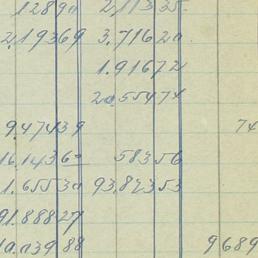 1289a 2,113 35.
2,193 69 3,716 20
1.916 72
20,554 74
9.474 39 74
16,143 60 583 56
1.655 30 93,873 53
91.888 27
10,039 88 9689